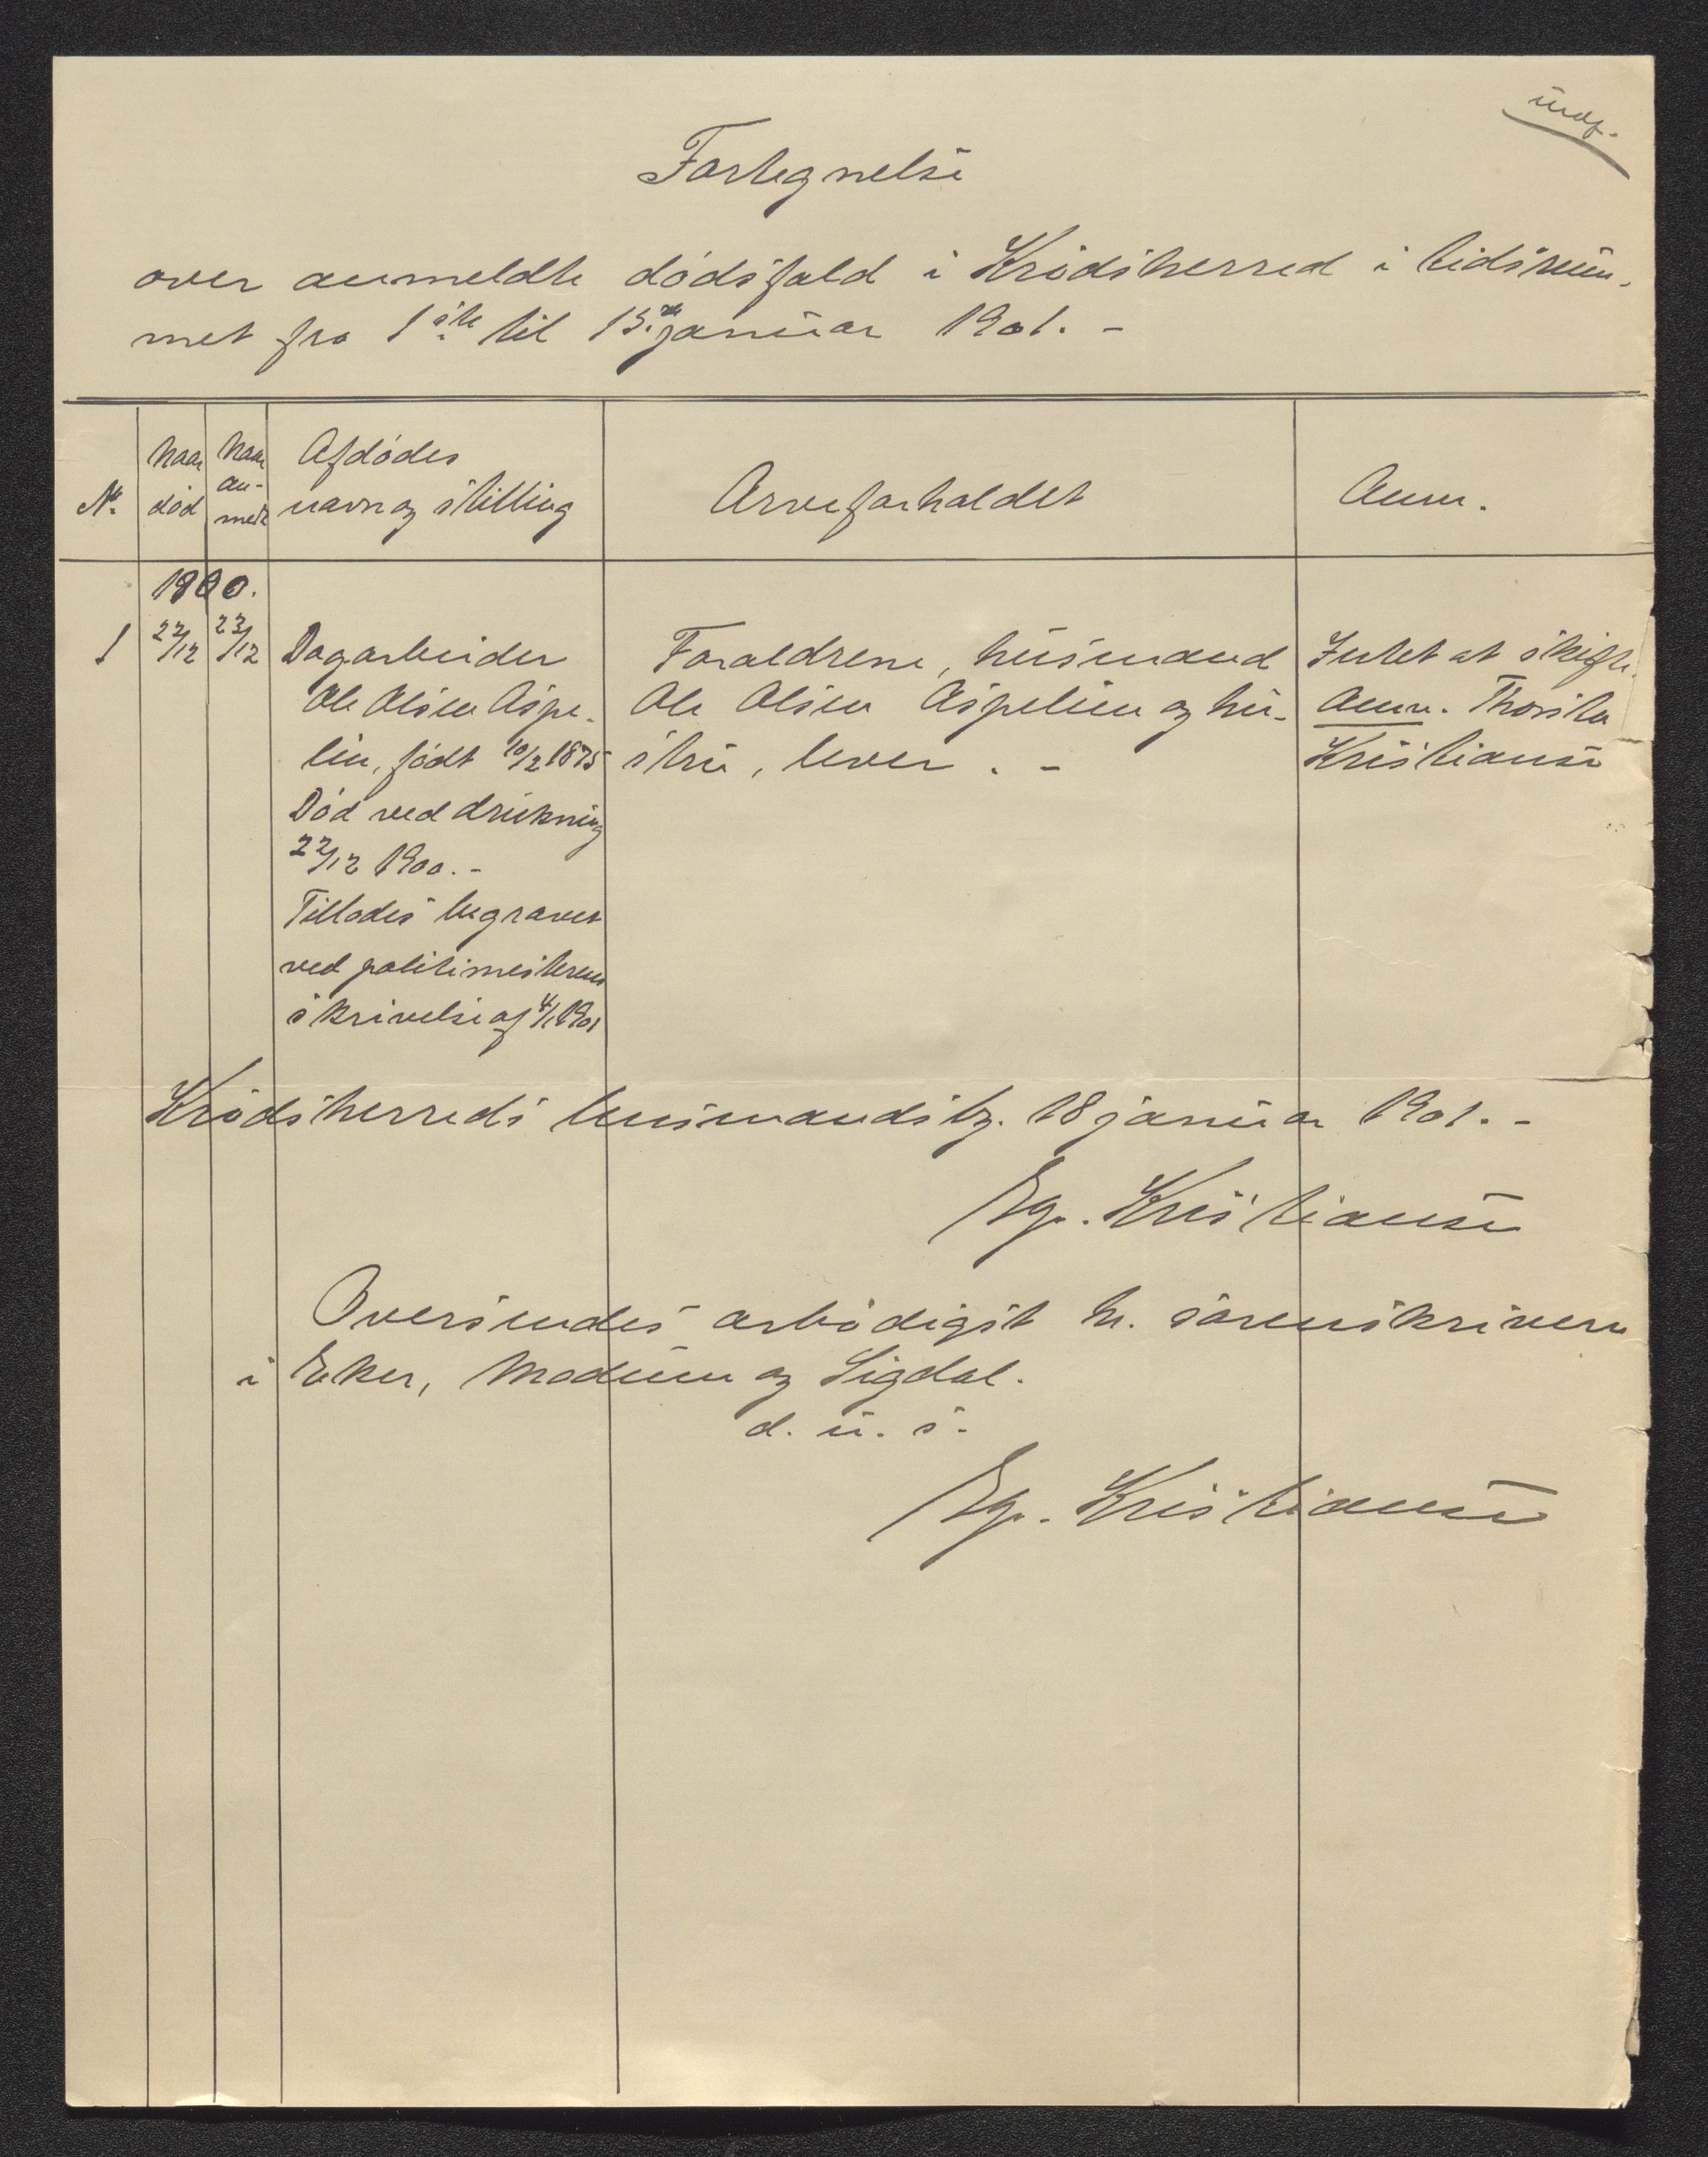 indf.
Fortegnelse
over anmeldte dødsfald i Krødsherred i tidsrum-
met fra 1ste til 15de januar 1901. -
Nr.
Naar død
Naar an-meldt
Afdødes navn og stilling
Arveforholdet
Anm.
1900.
1
22/12
23/12
Dagarbeider
Ole Olsen Aspe-
lien, født 10/2 1875
Død ved drukning
22/12 1900. -
Tillodes begravet
ved politimesterens
skrivelse af 4/1 1901
Forældrene, husmand
Ole Olsen Aspelien og hu-
stru, lever. -
Intet at skifte.
Anm. Thorsten
Kristiansen
Krødsherreds lensmandsbg. 18 januar 1901. -
Eg. Kristiansen
Oversendes ærbødigst hr. sorenskriveren
i Eker, Modum og Sigdal.
d. u. s.
Eg. Kristiansen